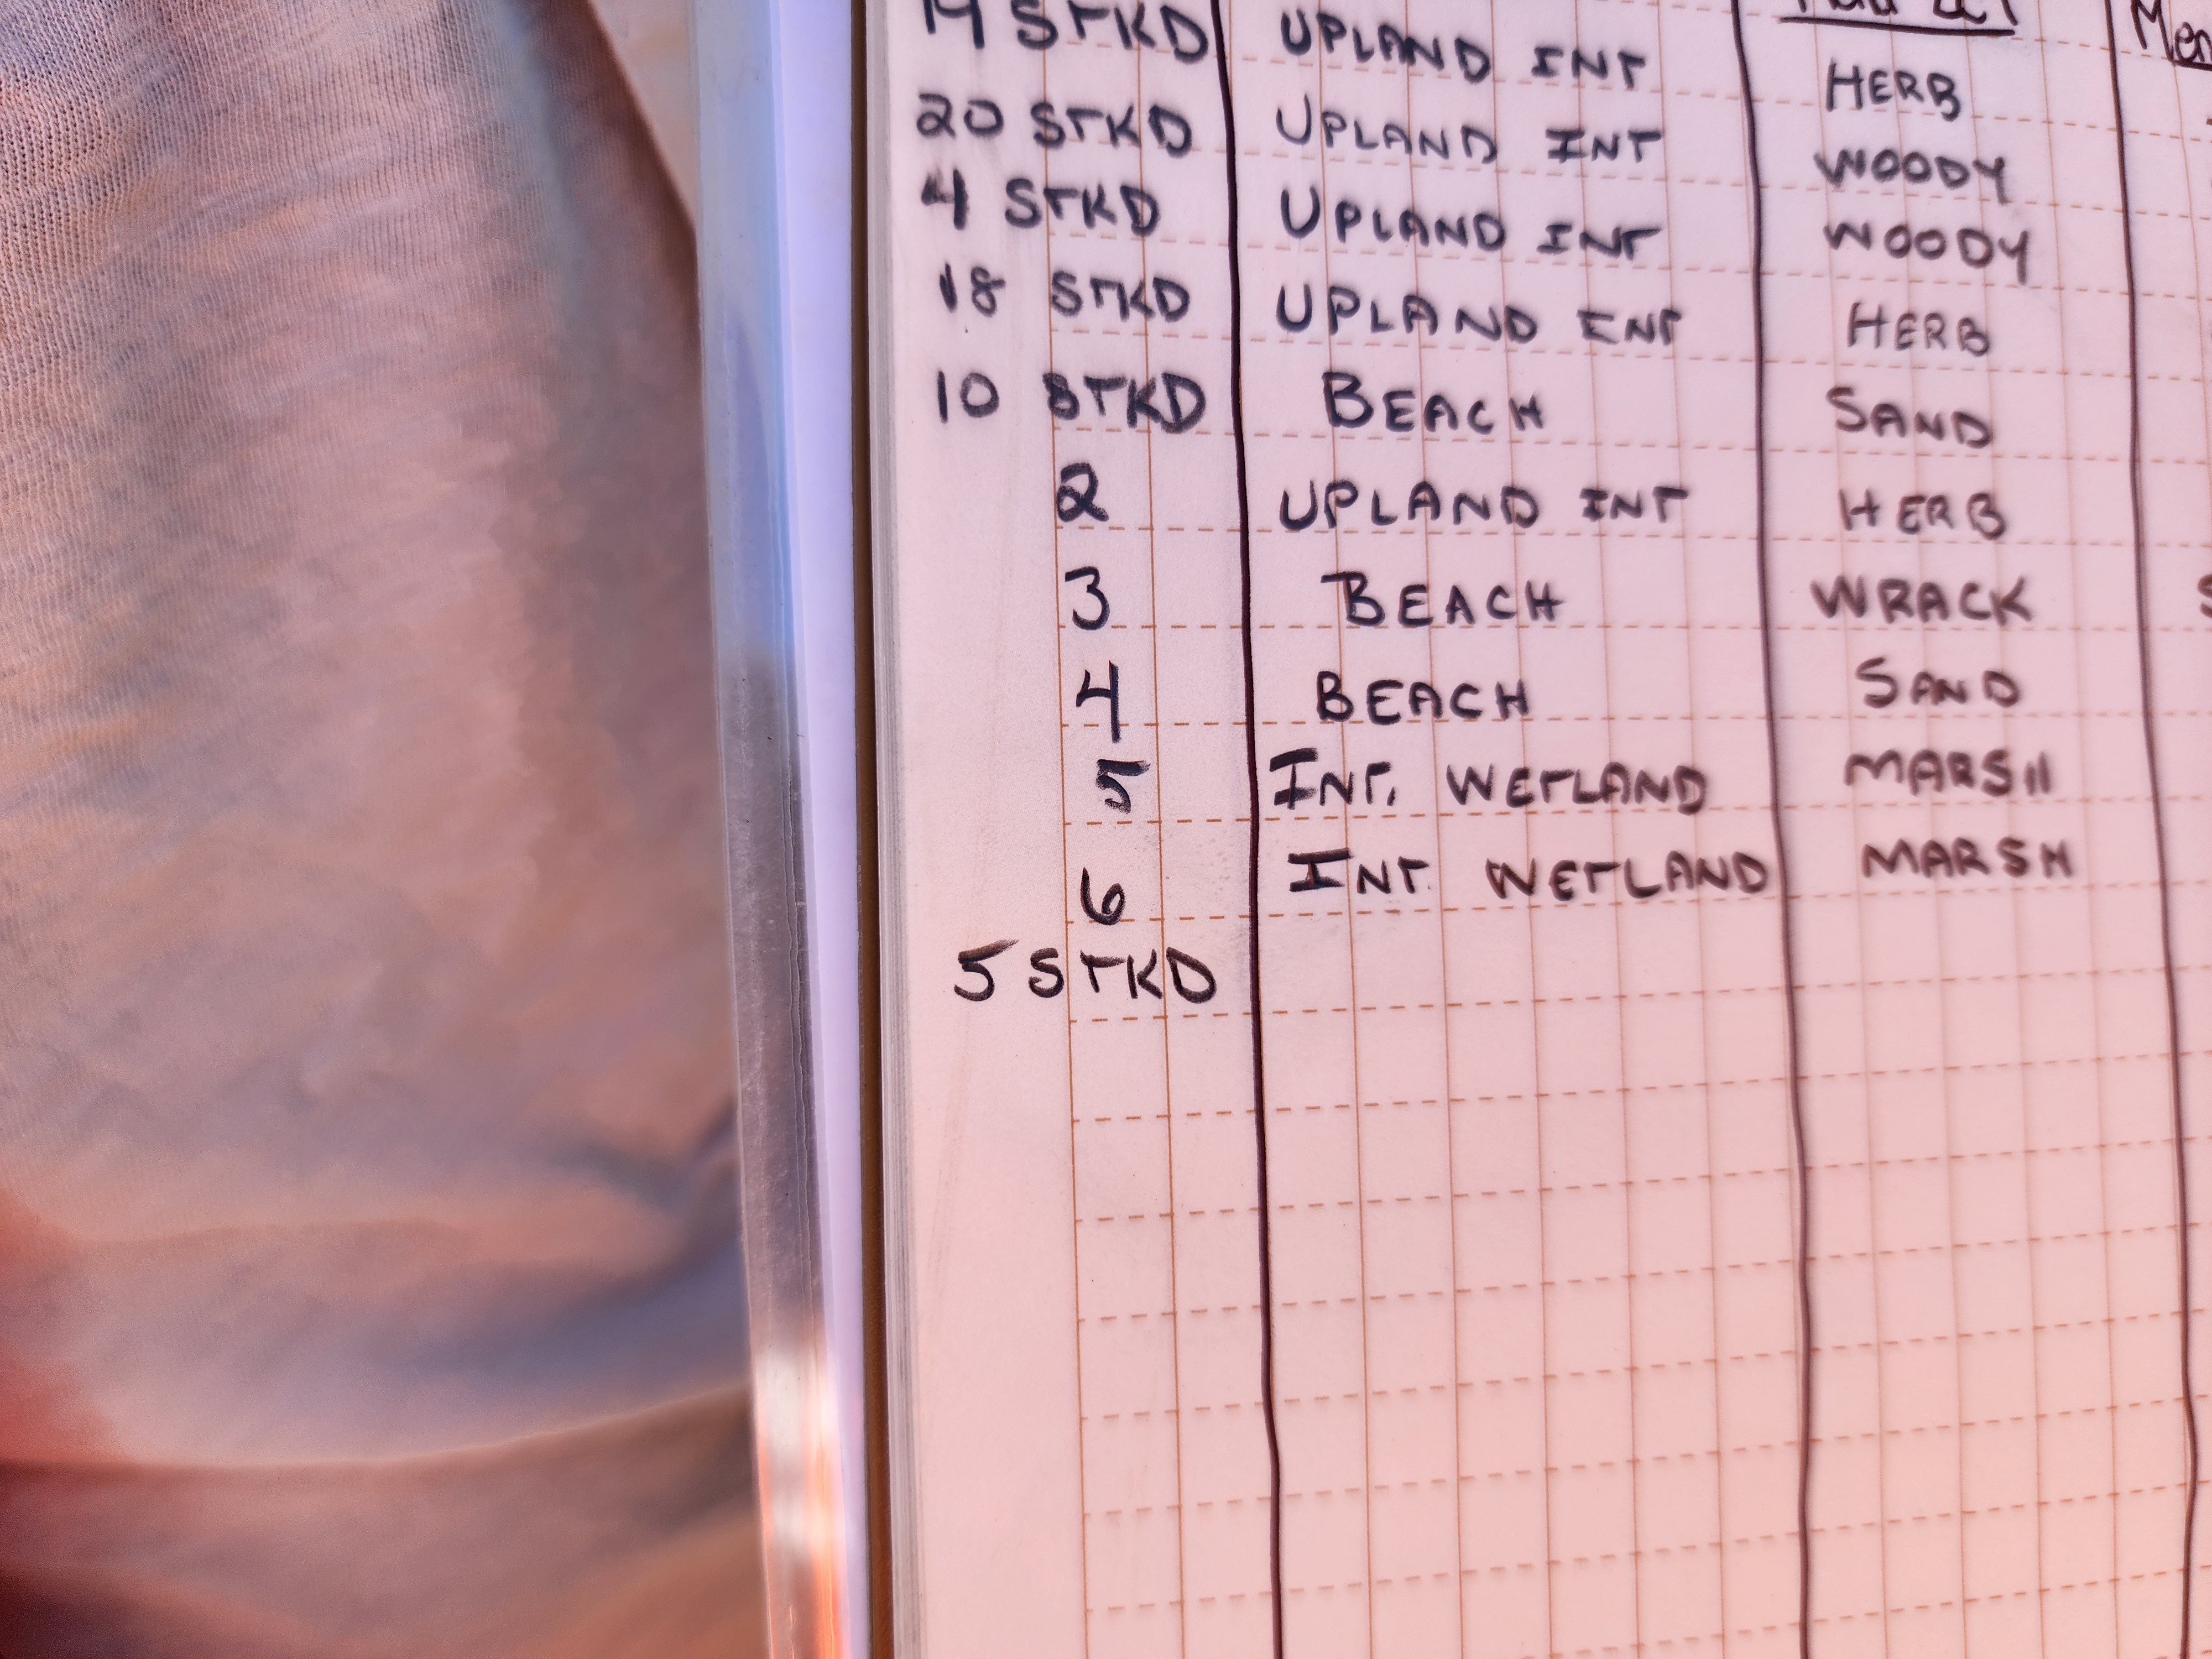 STKD UPLAND INT HERB
20 STKD UPLAND INT WOODY
4 STKD UPLAND INT WOODY
18 STKD UPLAND INT HERB
10 STKD BEACH SAND
2 UPLAND INT HERB
3 BEACH WRACK
4 BEACH SAND
5 INT. WETLAND MARSH
6 INT. WETLAND MARSH
5 STKD